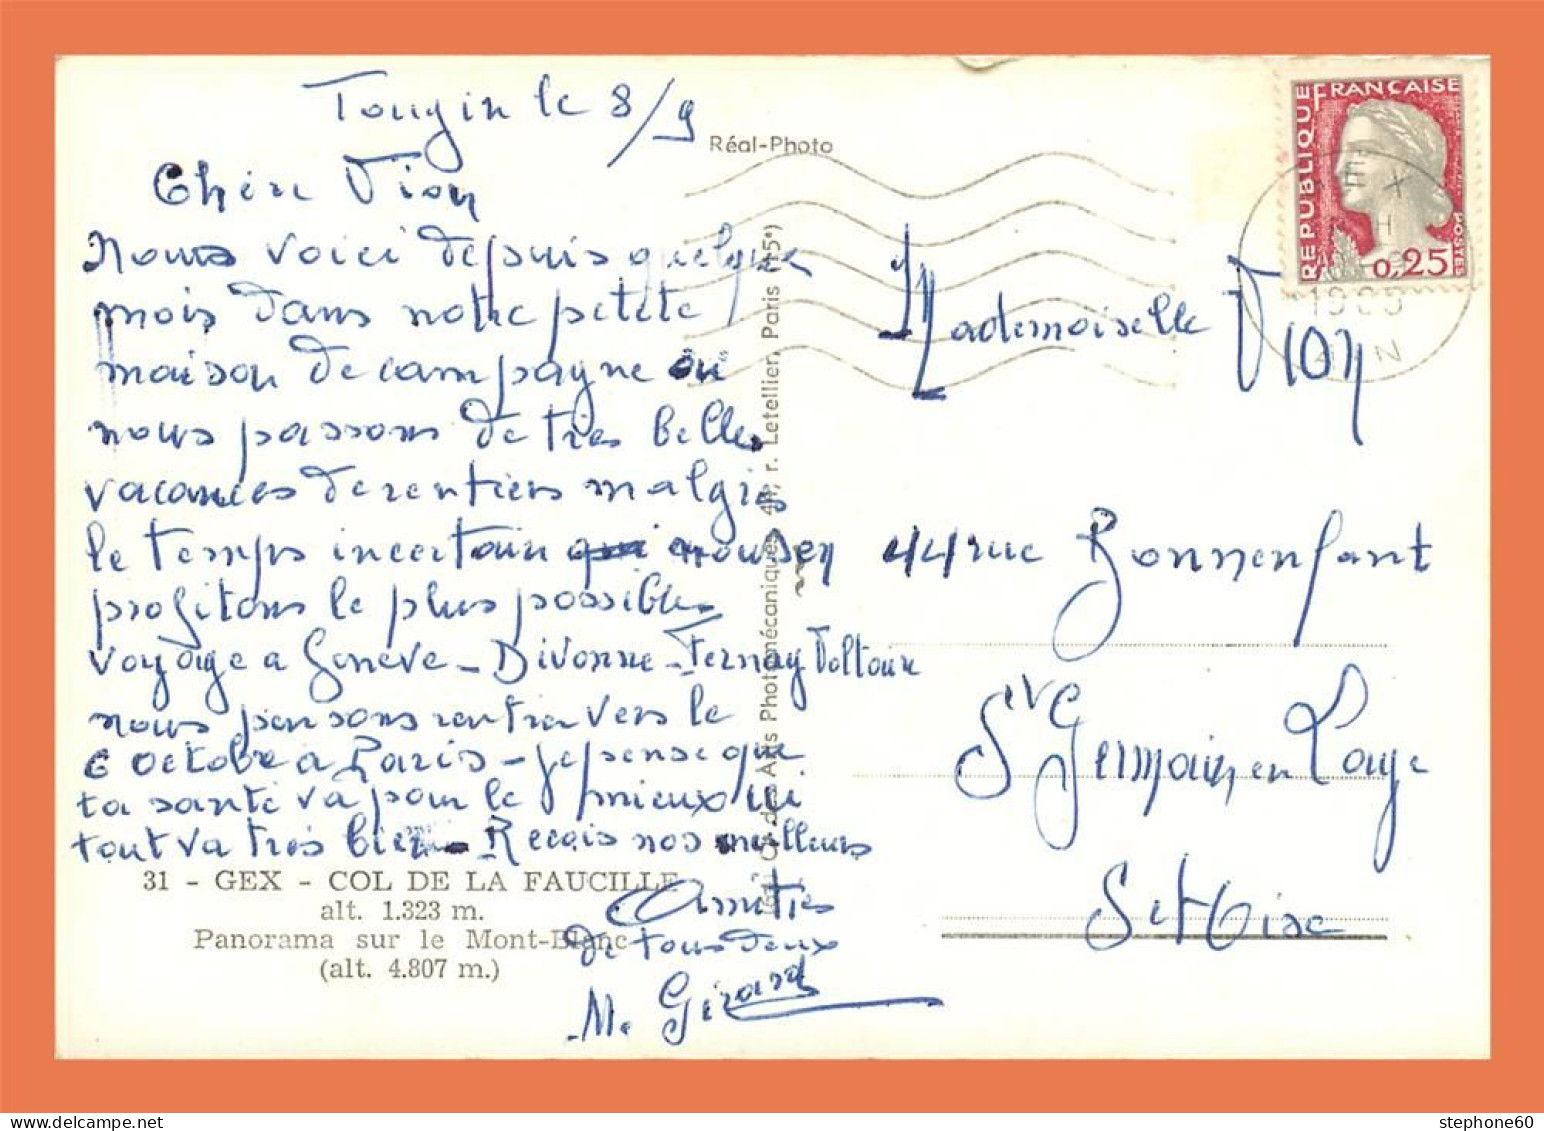 Tougin le 8/9
Chère Vion
Nous voici depuis quelque
mois dans notre petite
maison de campagne où
nous passons de très belles
vacances de rentiers malgrés
le temps incertain nous en
profitons le plus possible
voyage a Genève - Divonne - Fernay Voltaire
nous pensons rentrer vers le
6 octobre a Paris - je pense que
ta santé va pour le mieux ici
tout va très bien - Recois nos meilleurs
Amitiés
de tous deux
M. Girard
31 - GEX - COL DE LA FAUCILLE
alt. 1.323 m.
Panorama sur le Mont-Blanc
(alt. 4.807 m.)
Réal-Photo
Arts Photomécaniques, r. Letellier, Paris (15e)
RÉPUBLIQUE FRANÇAISE
POSTES
0,25
Mademoiselle Vion
44 rue Bonnenfant
St Germain en Laye
S et Oise
stephone60